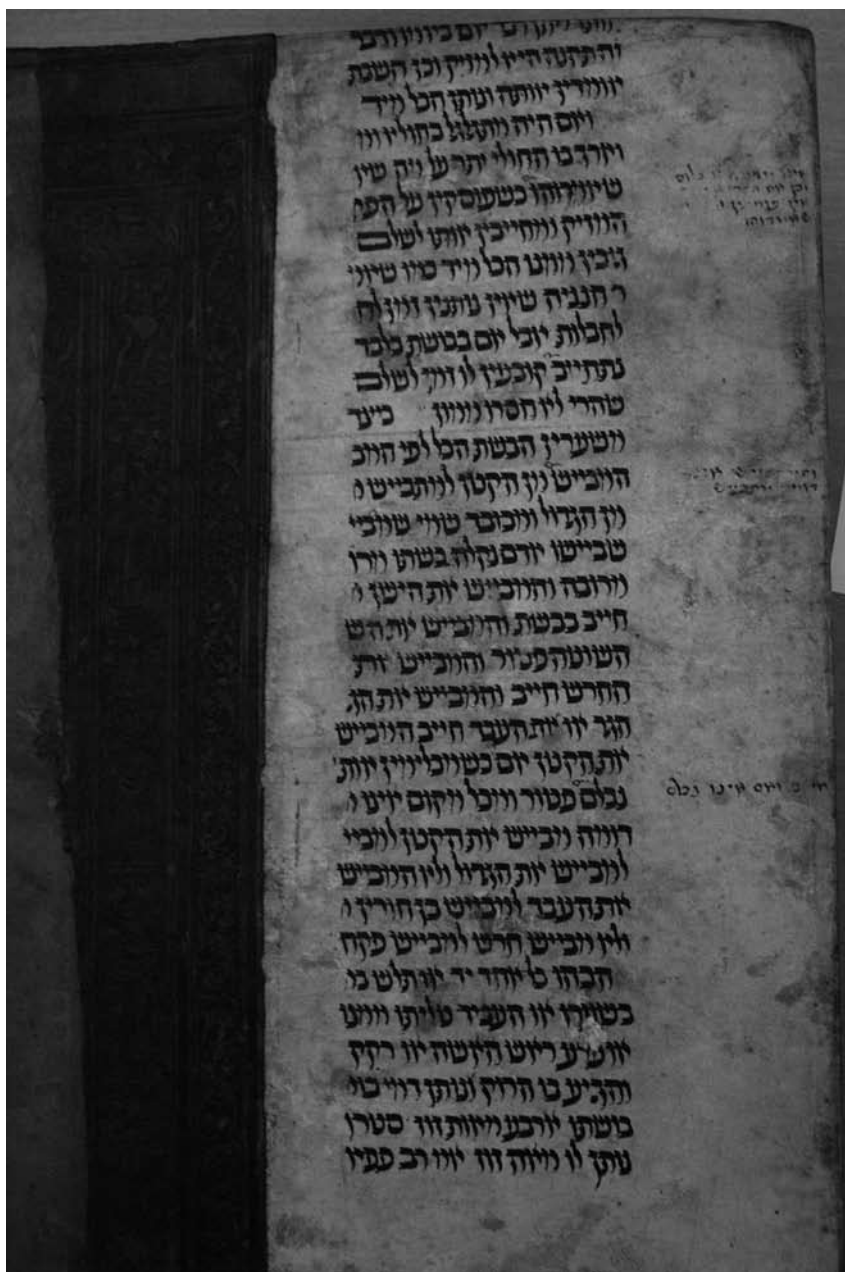 נותן יום ביומו ודבר
והתקנה היא למזיק וכן השבת
אומדין אותה ונותן הכל מיד
ואם היה מתגלגל בחוליו ומ
ויארך בו החולי יתר על מה שא
שאמדוהו כשפוסקין על הפי
המזיק ומחייבין אותו לשלם
גובין ממנו הכל מיד כמו שאמ
ר חנניה שאין נותנין זמן לח
לחבלות אבל אם בבשת בלבד
נתחייב קובעין לו זמן לשלם
שהרי לא חסרו ממון כיצד
משערין הבשת הכל לפי המב
המבייש מן הקטן למתבייש ו
מן הגדול ומכובד שמי שמבי
שביישו אדם נקלה בשתו מרו
מרובה והמבייש את הישן ו
חייב בבשת והמבייש את הש
השוטה פטור והמבייש את
החרש חייב והמבייש את הג
הגר או את העבד חייב המבייש
את הקטן אם כשמכלימין אות
נכלם פטור ומכל מקום אינו ו
דומה מבייש את הקטן למבי
למבייש את הגדול ולא המבייש
את העבד למבייש בן חורין ו
ולא מבייש חרש למבייש פקח
הכהו אחד יד או תלש בו
בשערו או העביר טליתו ממנו
או פרע ראש האשה או רקק
והגיע בו הרוק נותן דמי בו
בושתו ארבע מאות זוז סטרו
נותן לו מאה זוז אמ רב פפא
ואם אינו נכלם